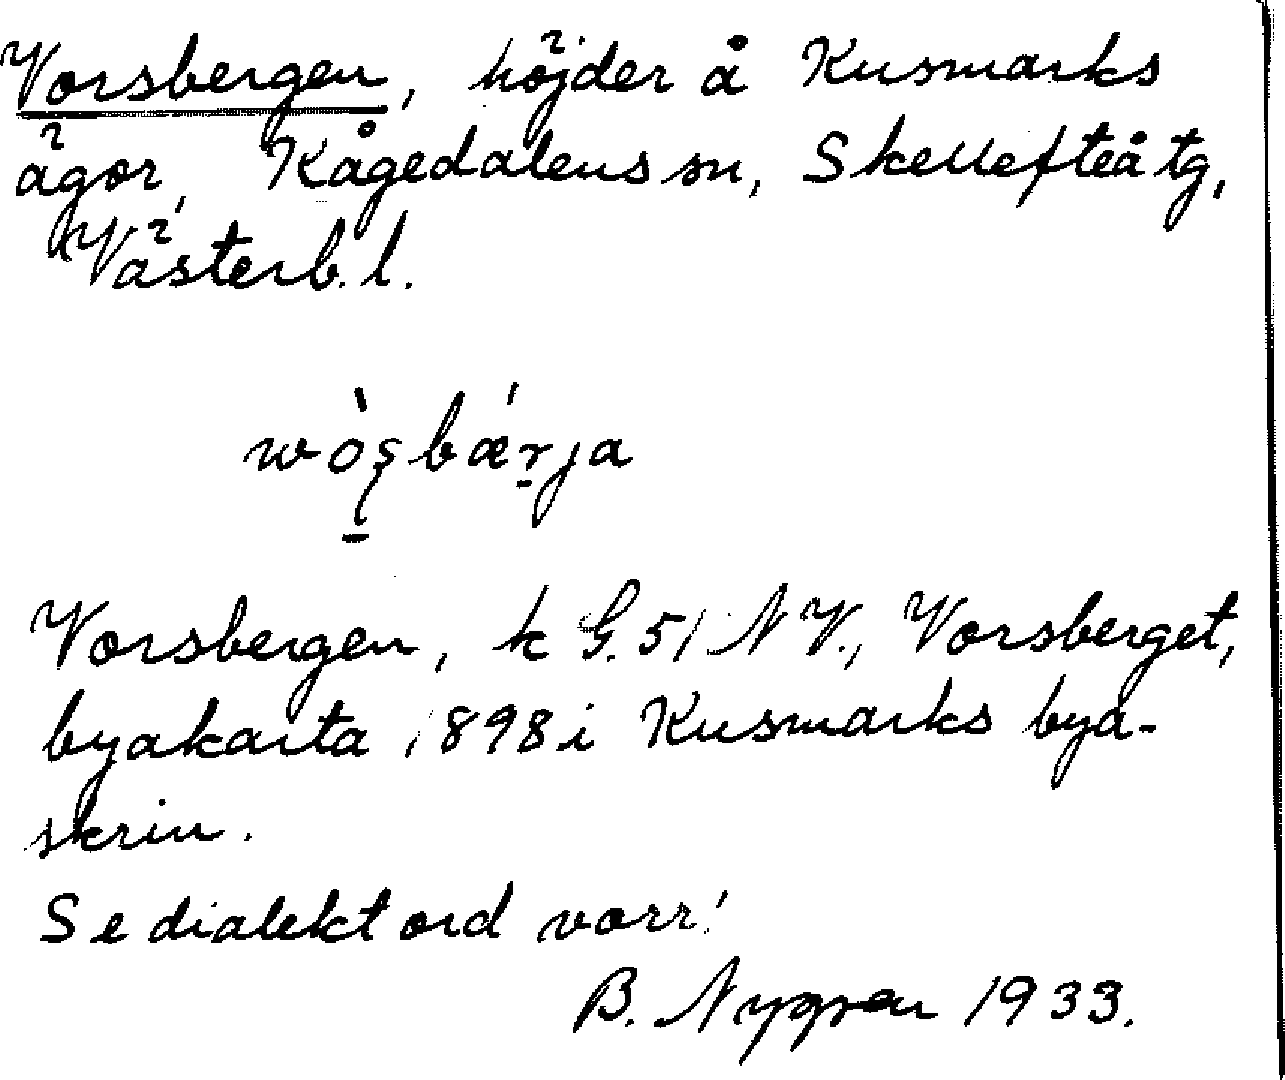 Vorsbergen, höjder å Kusmarks
ägor, Kågedalens sn, Skellefteå tg,
Västerb. l.
wò̠ʂbǽ̠rja
Vorsbergen, k G. 51 N V., Vorsberget,
byakarta 1898 i Kusmarks bya-
skrin.
Se dialektord vorr!
B. Nygren 1933.